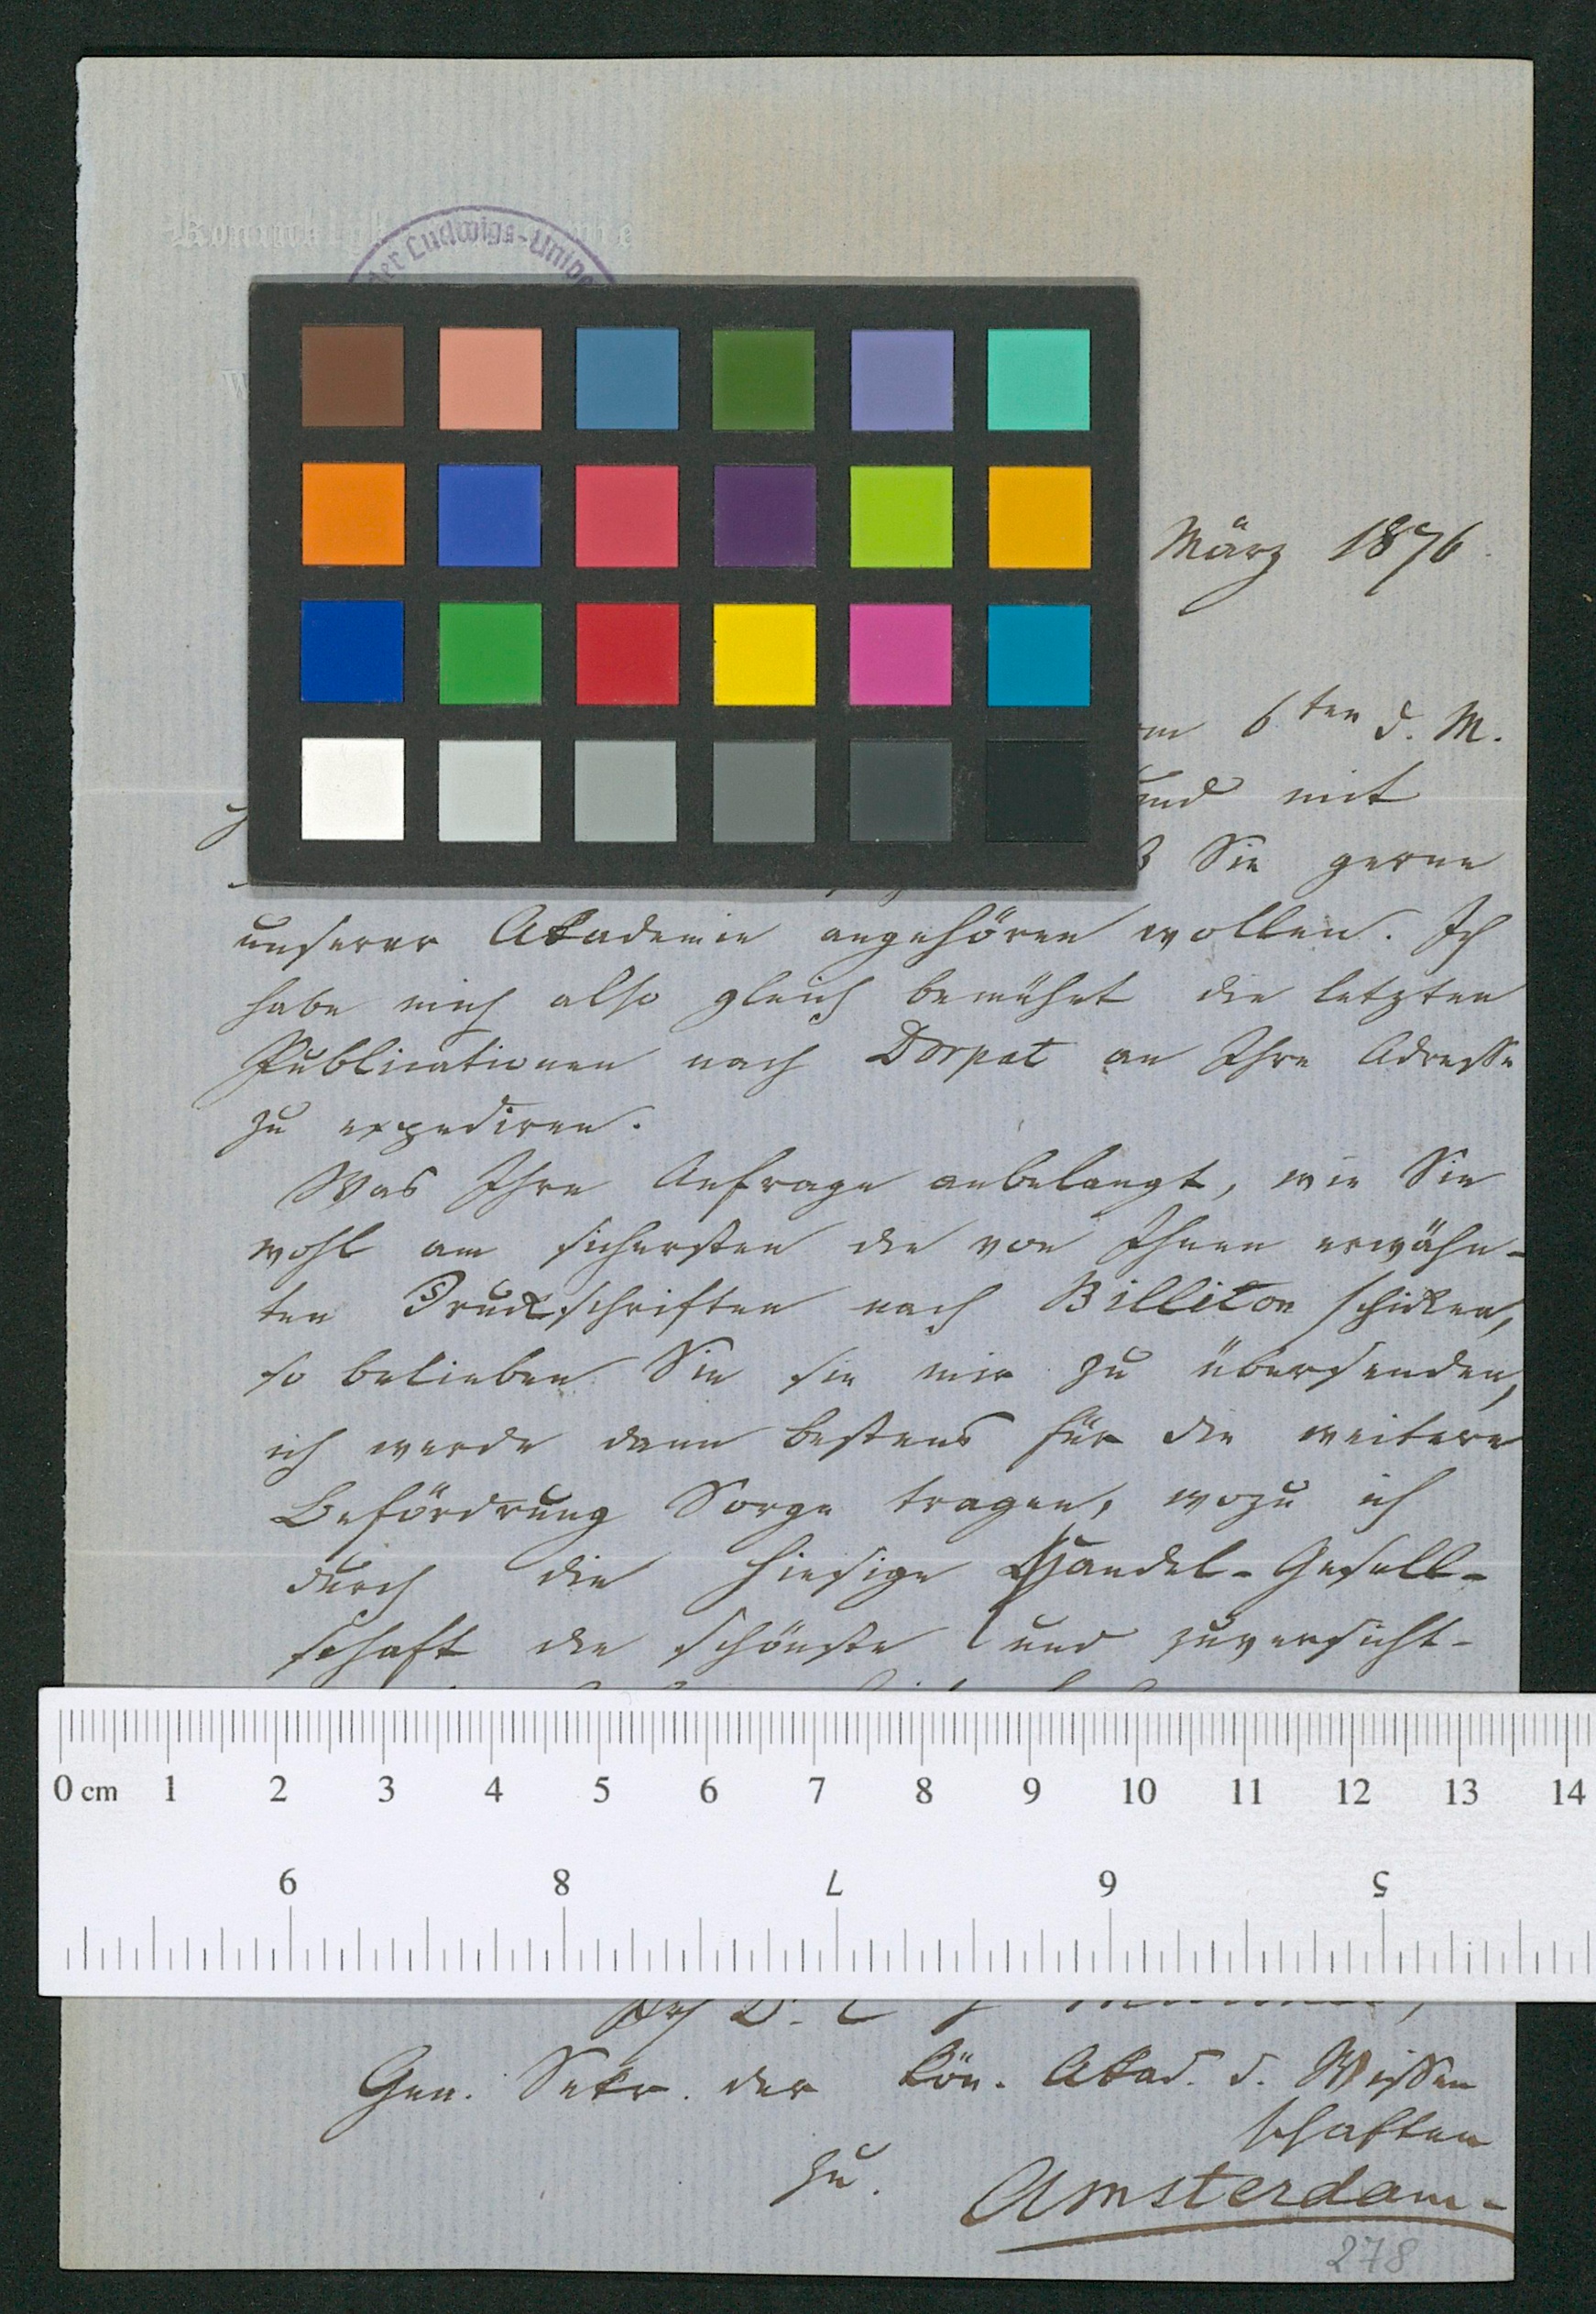 der Ludwigs-Unive
März 1876
6ten d. M.
und mit
Sie gerne
unserer Akademie angehören wollen. Ich
habe mich also gleich bemüht die letzten
Publicationen nach Dorpat an Ihre Adresse
zu expediren.
Was Ihre Anfrage anbelangt, wie Sie
wohl am sichersten die von Ihnen erwähn-
ten Druckschriften nach Billiton schicken,
so belieben Sie sie mir zu übersenden,
ich werde dann bestens für die weitere
Beförderung Sorge tragen, wozu ich
durch die hiesige Handel-Gesell-
schaft die schönste und zuversicht-
0 cm 1 2 3 4 5 6 7 8 9 10 11 12 13 14
9 8 7 6 5
Gen. Sekr. der kön. Akad. d. Wissen
schaften
zu.
Amsterdam-
278